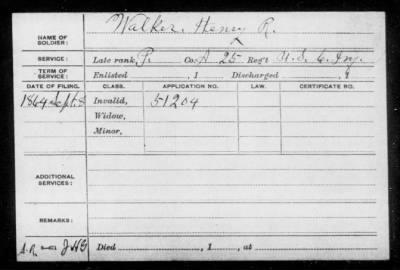 NAME OF SOLDIER: Walker, Henry R.
SERVICE: Late rank, P. Co. A 25 Reg't U.S.C. Inf.
TERM OF SERVICE: Enlisted , 1 Discharged , 1
DATE OF FILING. CLASS. APPLICATION NO. LAW. CERTIFICATE NO.
1864 Sept. 8 Invalid, 51204
Widow,
Minor,
ADDITIONAL SERVICES:
REMARKS:
Died , 1 , at